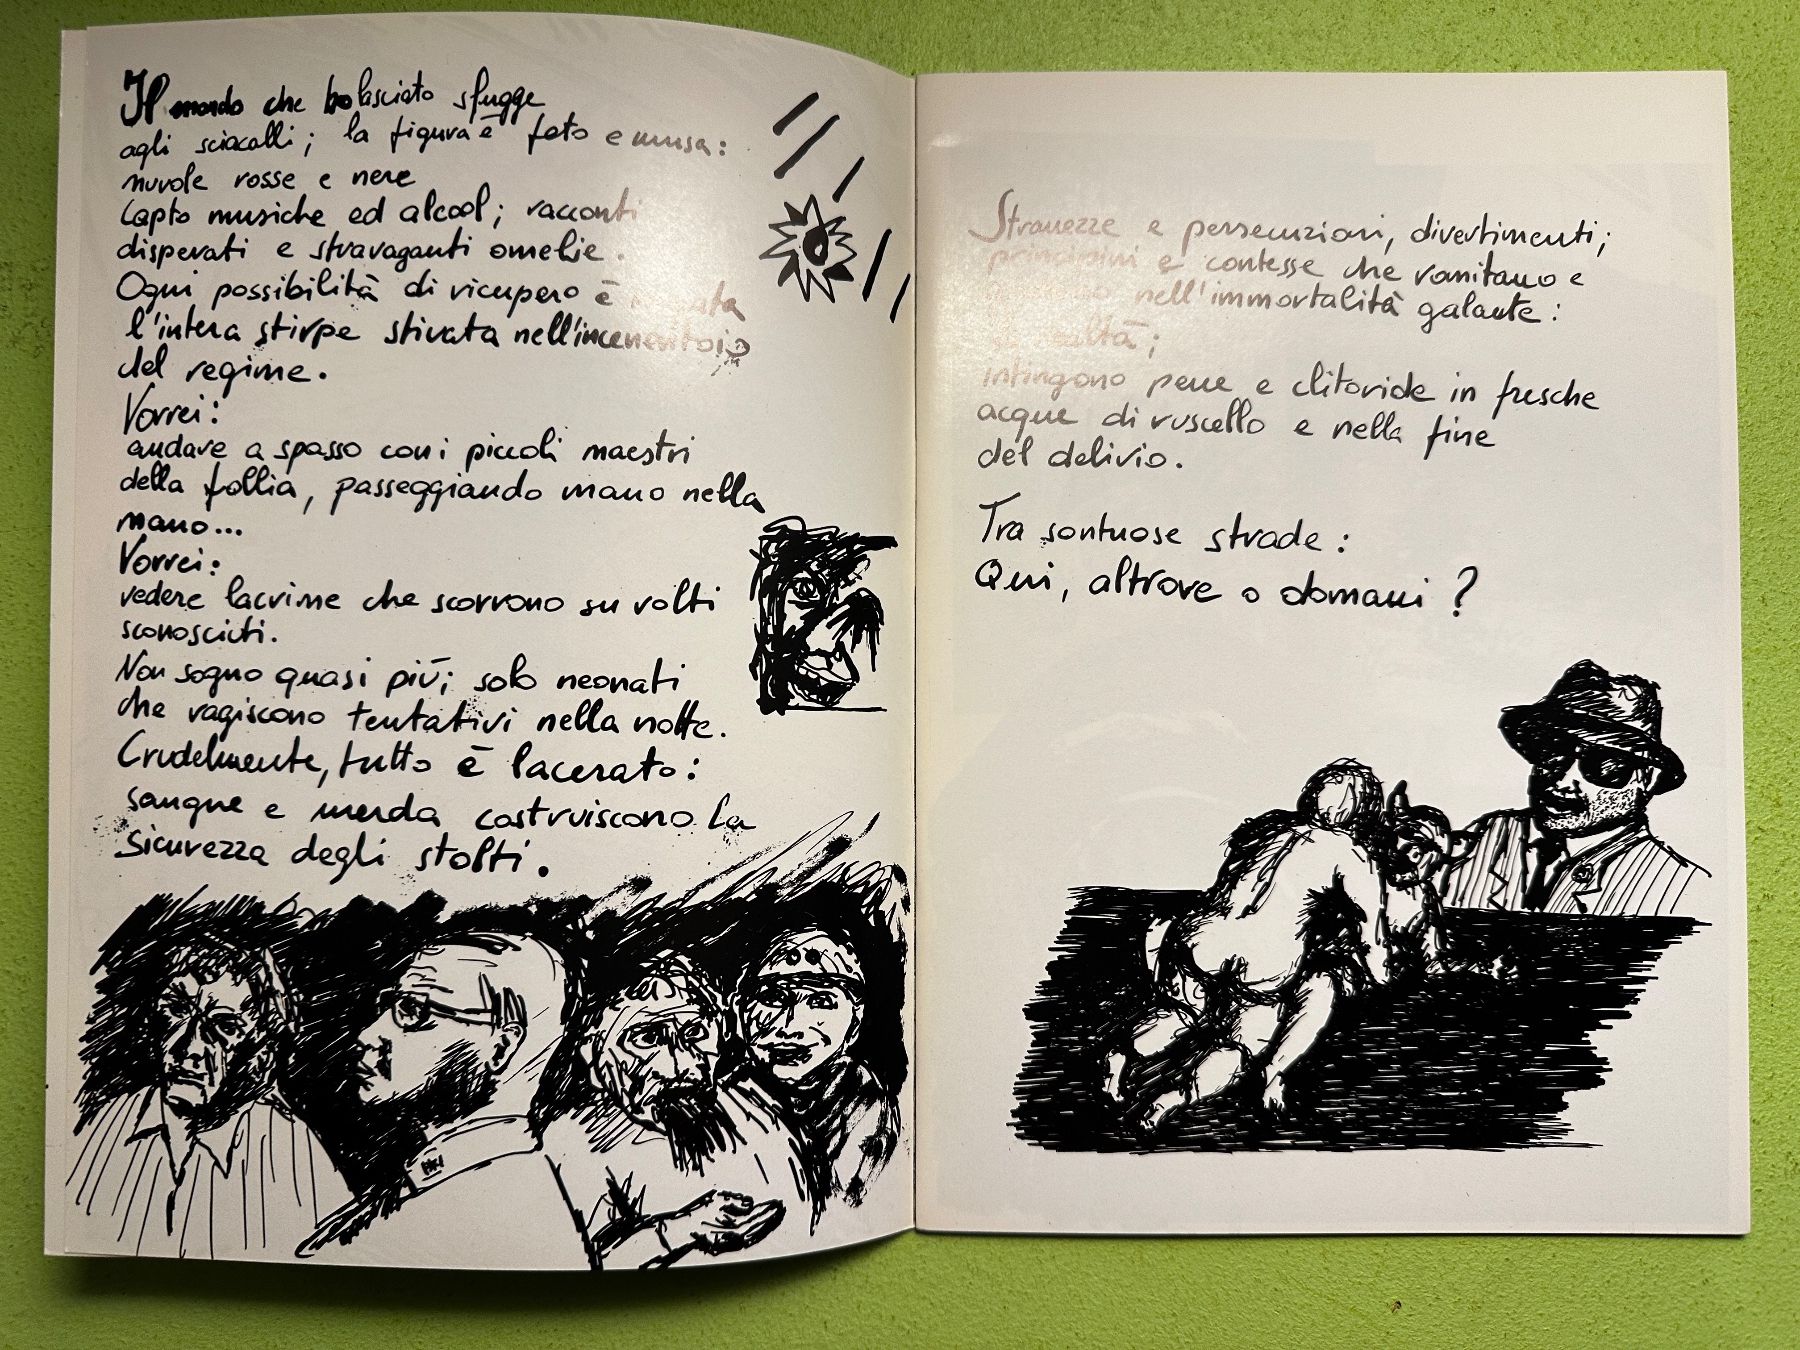 Il mondo che ho lasciato sfugge
agli sciacalli; la figura è fato e musa:
nuvole rosse e nere
Capto musiche ed alcool; racconti
disperati e stravaganti omelie.
Ogni possibilità di ricupero è
l'intera stirpe stivata nell'inceneritoio
del regime.
Vorrei:
andare a spasso con i piccoli maestri
della follia, passeggiando mano nella
mano...
Vorrei:
vedere lacrime che scorrono su volti
sconosciuti.
Non sogno quasi più; solo neonati
che vagiscono tentativi nella notte.
Crudelmente, tutto è lacerato:
sangue e merda costruiscono la
sicurezza degli stolti.
Stranezze e persecuzioni, divertimenti;
principini e contesse che vomitano e
nell'immortalità galante:
realtà;
intingono pene e clitoride in fresche
acque di ruscello e nella fine
del delirio.
Tra sontuose strade:
Qui, altrove o domani?